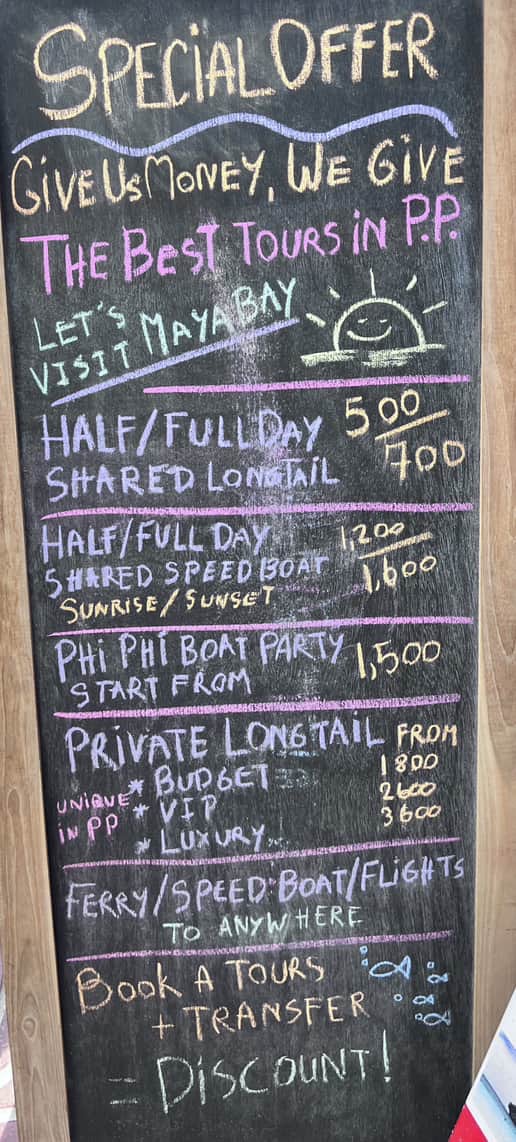 SPECIAL OFFER
GIVE US MONEY, WE GIVE
THE BEST TOURS IN P.P.
LET'S
VISIT MAYA BAY
HALF/FULL DAY 500/
SHARED LONGTAIL 700
HALF/FULL DAY 1,200/
SHARED SPEED BOAT 1,600
SUNRISE/SUNSET
PHI PHI BOAT PARTY 1,500
START FROM
PRIVATE LONGTAIL FROM
* BUDGET 1800
UNIQUE * VIP 2600
IN PP * LUXURY 3600
FERRY/SPEED BOAT/FLIGHTS
TO ANYWHERE
BOOK A TOURS
+ TRANSFER
= DISCOUNT!